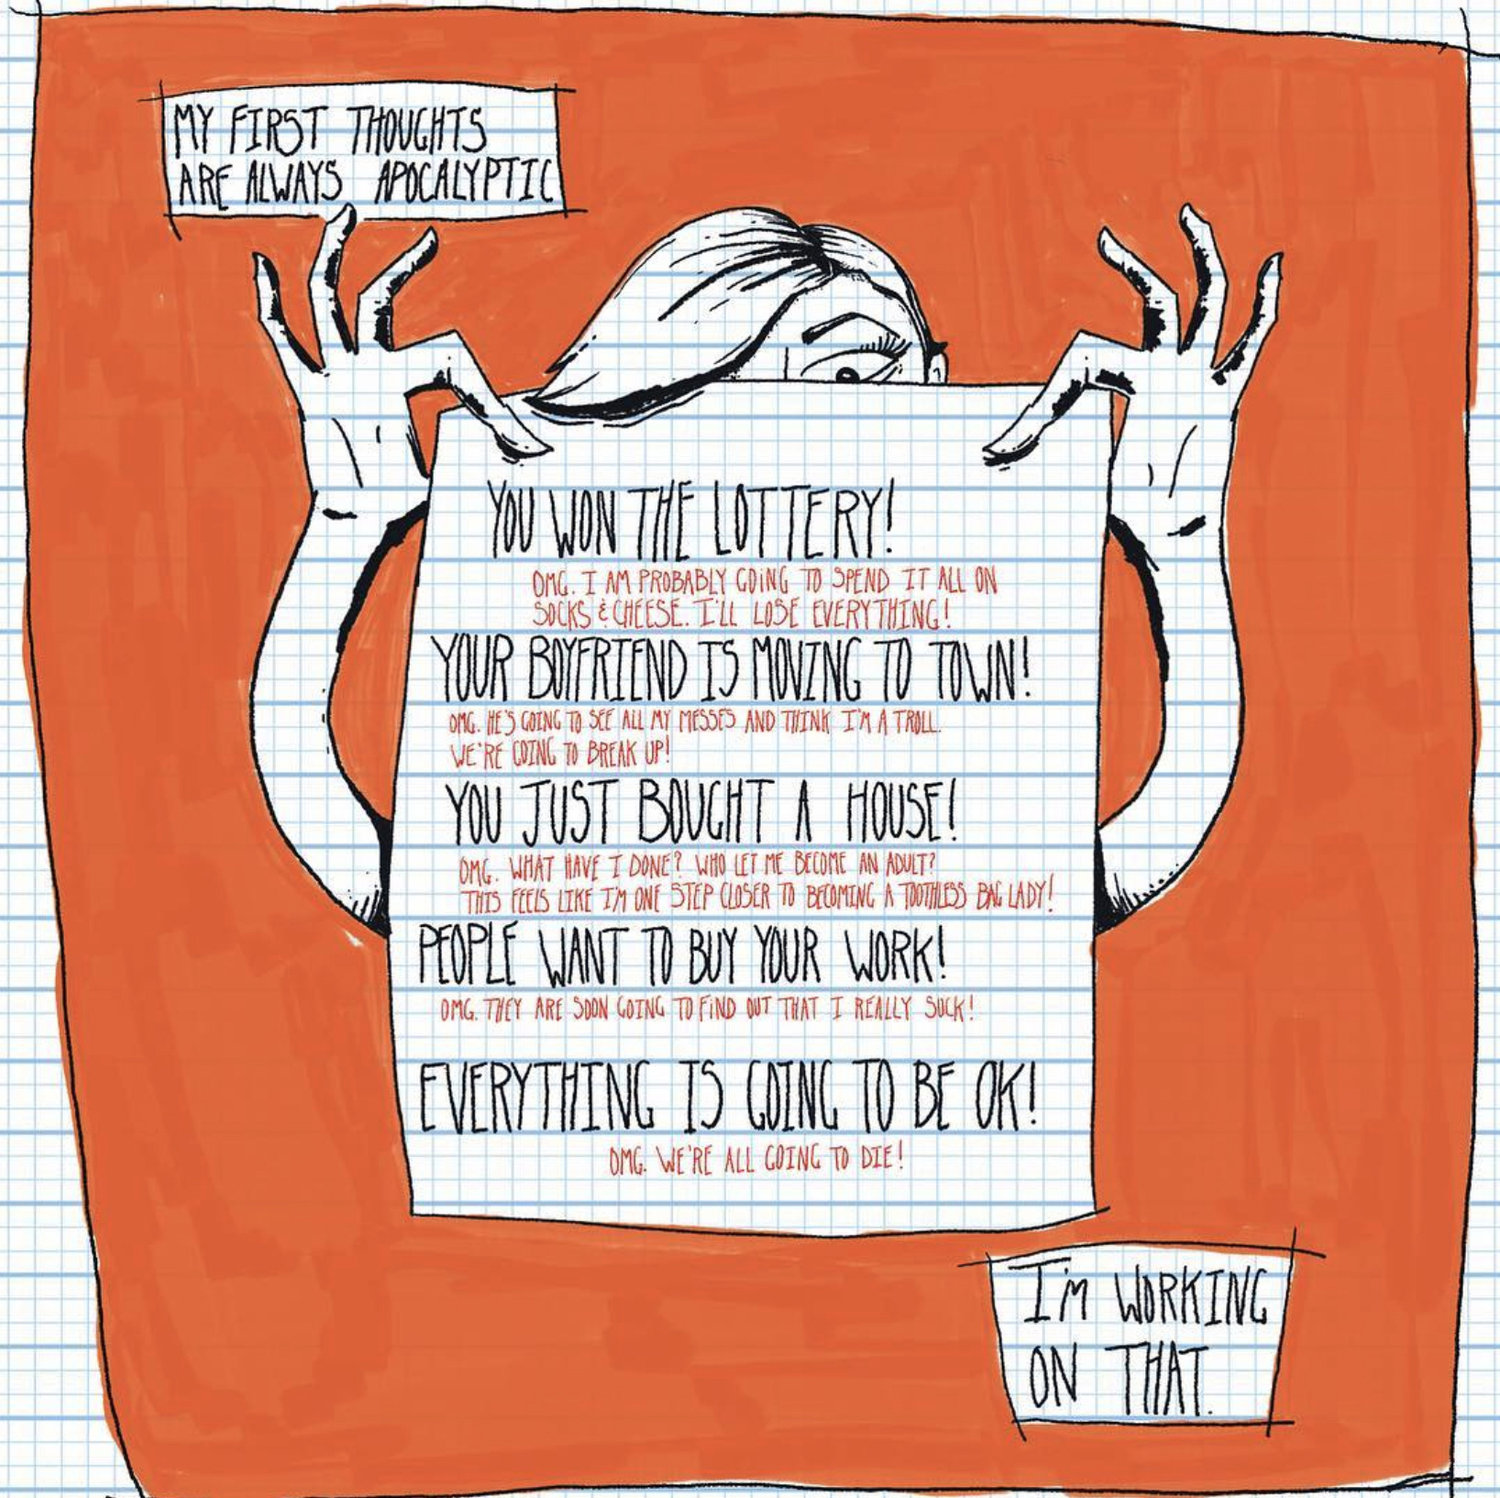 MY FIRST THOUGHTS
ARE ALWAYS APOCALYPTIC
YOU WON THE LOTTERY!
OMG. I AM PROBABLY GOING TO SPEND IT ALL ON
SOCKS & CHEESE. I'LL LOSE EVERYTHING!
YOUR BOYFRIEND IS MOVING TO TOWN!
OMG. HE'S GOING TO SEE ALL MY MESSES AND THINK I'M A TROLL.
WE'RE GOING TO BREAK UP!
YOU JUST BOUGHT A HOUSE!
OMG. WHAT HAVE I DONE? WHO LET ME BECOME AN ADULT?
THIS FEELS LIKE I'M ONE STEP CLOSER TO BECOMING A TOOTHLESS BAG LADY!
PEOPLE WANT TO BUY YOUR WORK!
OMG. THEY ARE SOON GOING TO FIND OUT THAT I REALLY SUCK!
EVERYTHING IS GOING TO BE OK!
OMG. WE'RE ALL GOING TO DIE!
I'M WORKING
ON THAT.